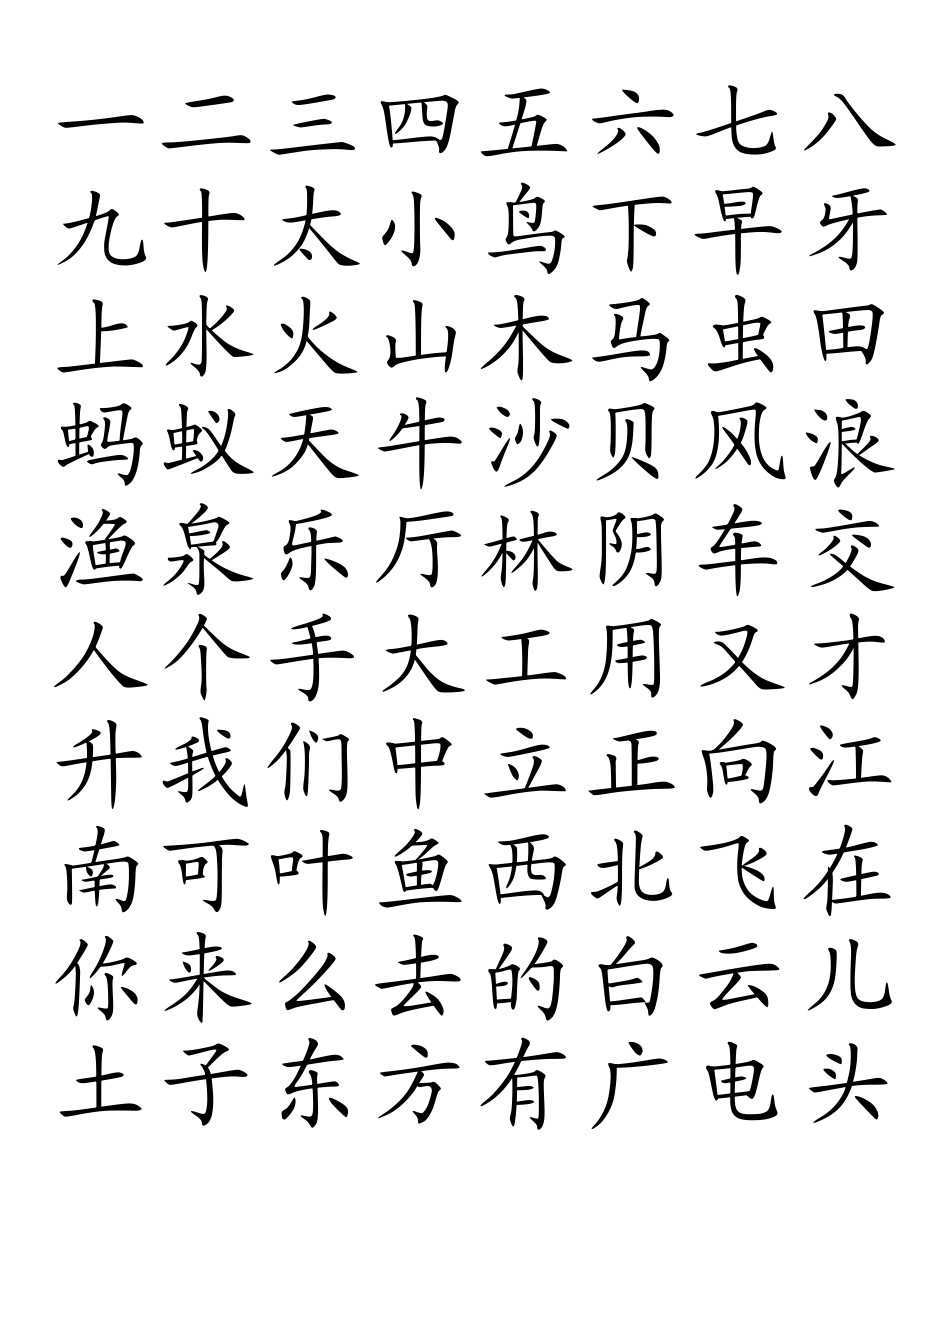 一二三四五六七八
九十太小鸟下早牙
上水火山木马虫田
蚂蚁天牛沙贝风浪
渔泉乐厅林阴车交
人个手大工用又才
升我们中立正向江
南可叶鱼西北飞在
你来么去的白云儿
土子东方有广电头